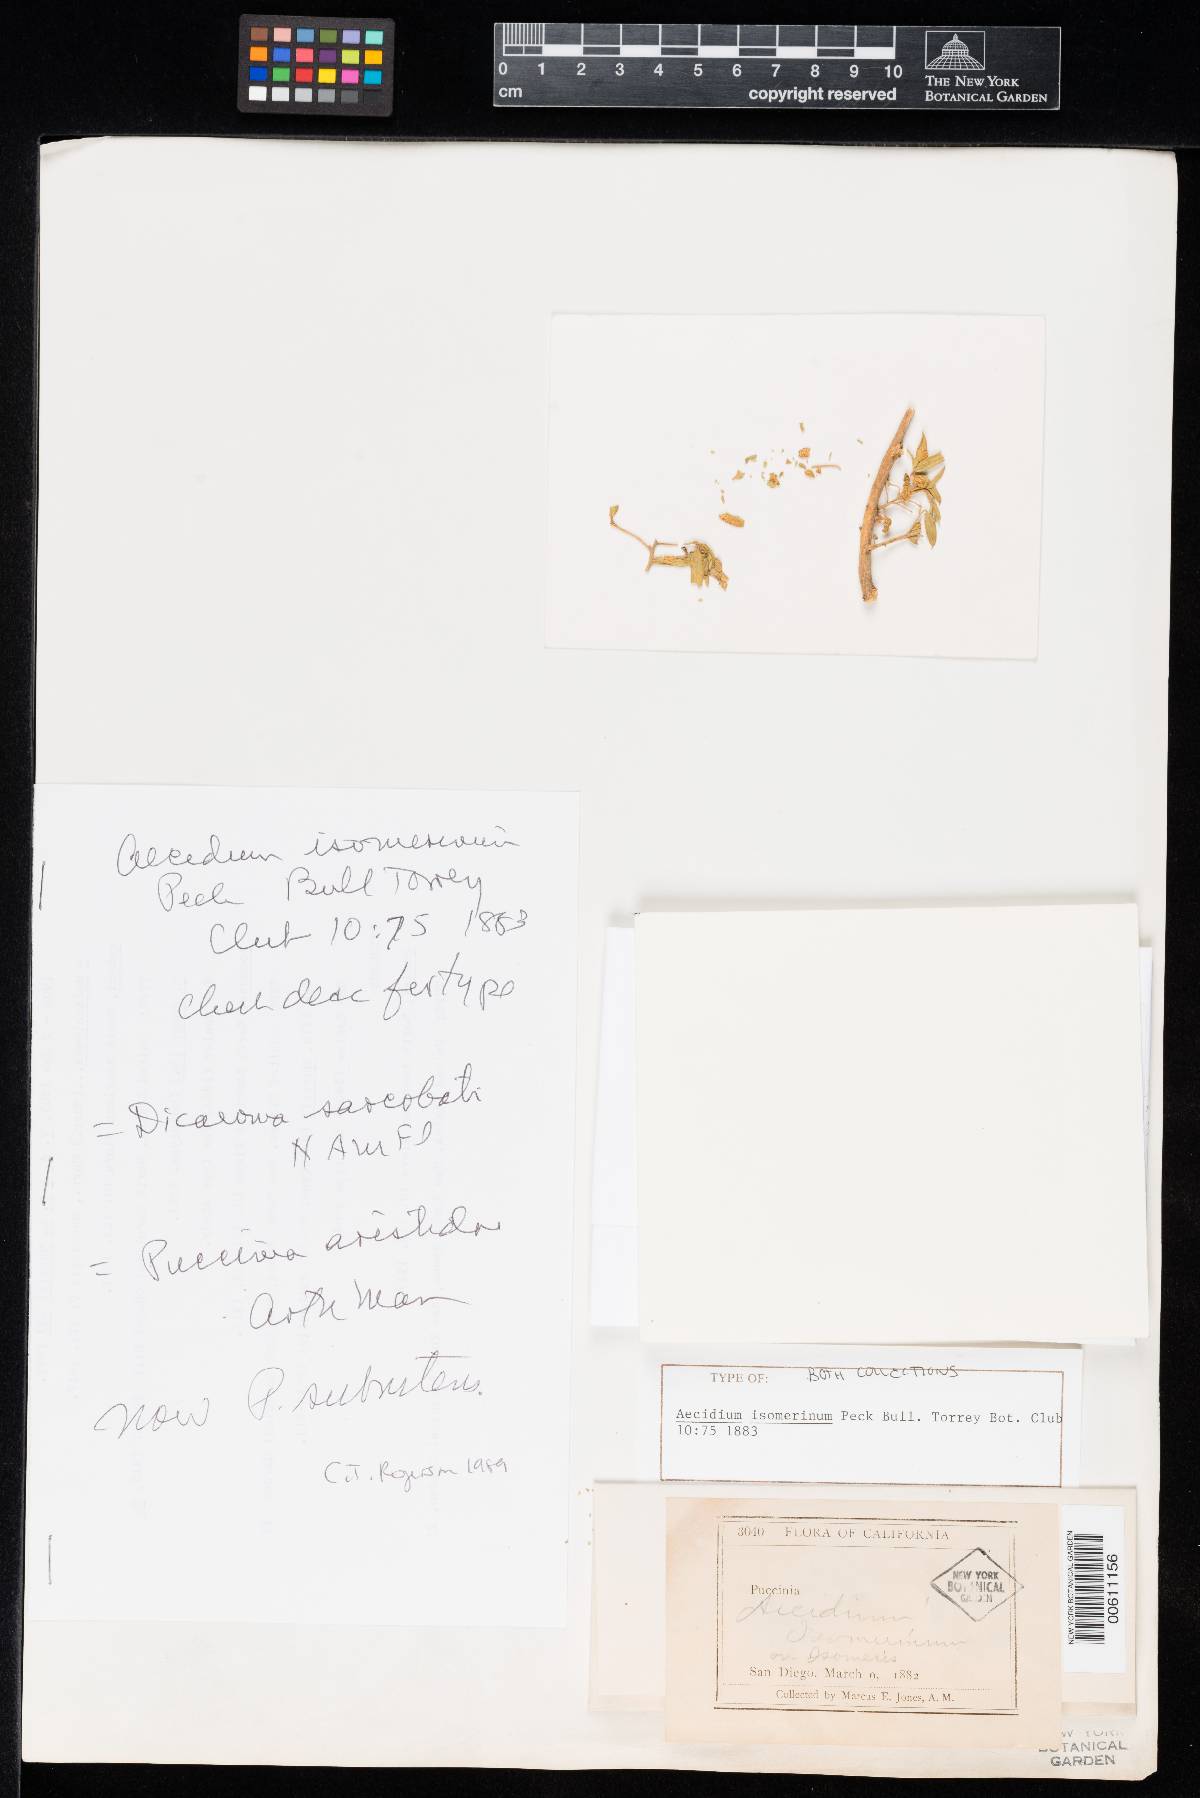 0 1 2 3 4 5 6 7 8 9 10
cm
copyright reserved
THE NEW YORK
BOTANICAL GARDEN
Aecidium isomerinum
Peck Bull Torrey
Club 10:75 1883
Check desc for type
= Dicaeoma sarcobati
N Am Fl
= Puccinia aristidae
Arth Man
now P. subnitens.
C.T. Rogerson 1989
TYPE OF: BOTH COLLECTIONS
Aecidium isomerinum Peck Bull. Torrey Bot. Club
10:75 1883
3040 FLORA OF CALIFORNIA
NEW YORK
BOTANICAL
GARDEN
Puccinia
Aecidium
Isomerinum
on Isomeris
San Diego. March 9, 1882
Collected by Marcus E. Jones, A. M.
NEW YORK BOTANICAL GARDEN
00611156
NEW YORK
BOTANICAL
GARDEN